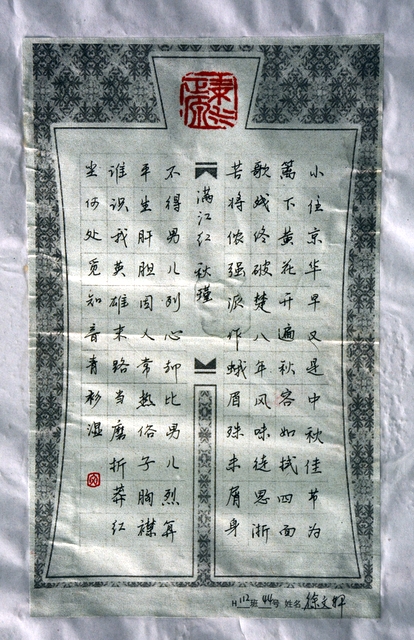 小住京华早又是中秋佳节为
篱下黄花开遍秋容如拭四面
歌残终破楚八年风味徒思浙
苦将侬强派作蛾眉殊未屑身
满江红 秋瑾
不得男儿列心却比男儿烈算
平生肝胆因人常热俗子胸襟
谁识我英雄末路当磨折莽红
尘何处觅知音青衫湿
H 112班 44号 姓名 徐文